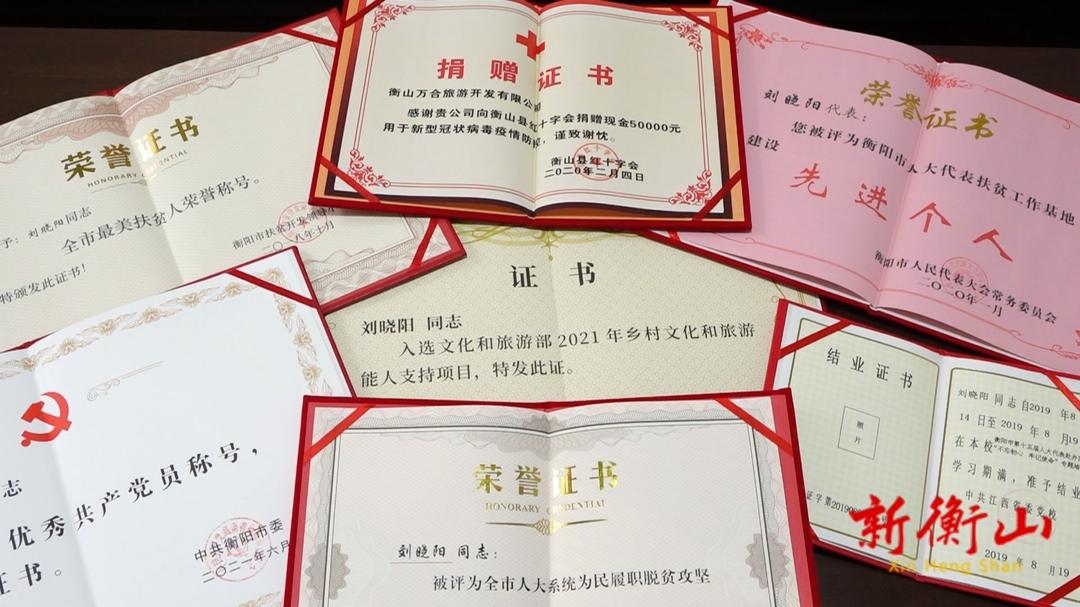 荣誉证书
HONORARY CREDENTIAL
予：刘晓阳同志
全市最美扶贫人荣誉称号。
特颁发此证书！
衡阳市扶贫开发领导小
二〇一八年十月
捐赠证书
衡山万合旅游开发有限公司
感谢贵公司向衡山县红十字会捐赠现金50000元
用于新型冠状病毒疫情防控，谨致谢忱。
衡山县红十字会
二〇二〇年二月四日
荣誉证书
刘晓阳代表：
您被评为衡阳市人大代表扶贫工作基地
建设
先进个人
衡阳市人民代表大会常务委员会
二〇二〇年一月
证书
刘晓阳 同志
入选文化和旅游部2021年乡村文化和旅游
能人支持项目，特发此证。
志
优秀共产党员称号，
证书。
中共衡阳市委
二〇二一年六月
荣誉证书
HONORARY CREDENTIAL
刘晓阳 同志：
被评为全市人大系统为民履职脱贫攻坚
结业证书
照
片
证学第20190
刘晓阳 同志自2019 年8
14 日至2019 年 8 月19
在本校
衡阳市第十五届人大代表赴井
"不忘初心 牢记使命"专题培
学习期满，准予结业
中共江西省委党校
2019 年 8 月 19
新衡山
Xin Heng Shan